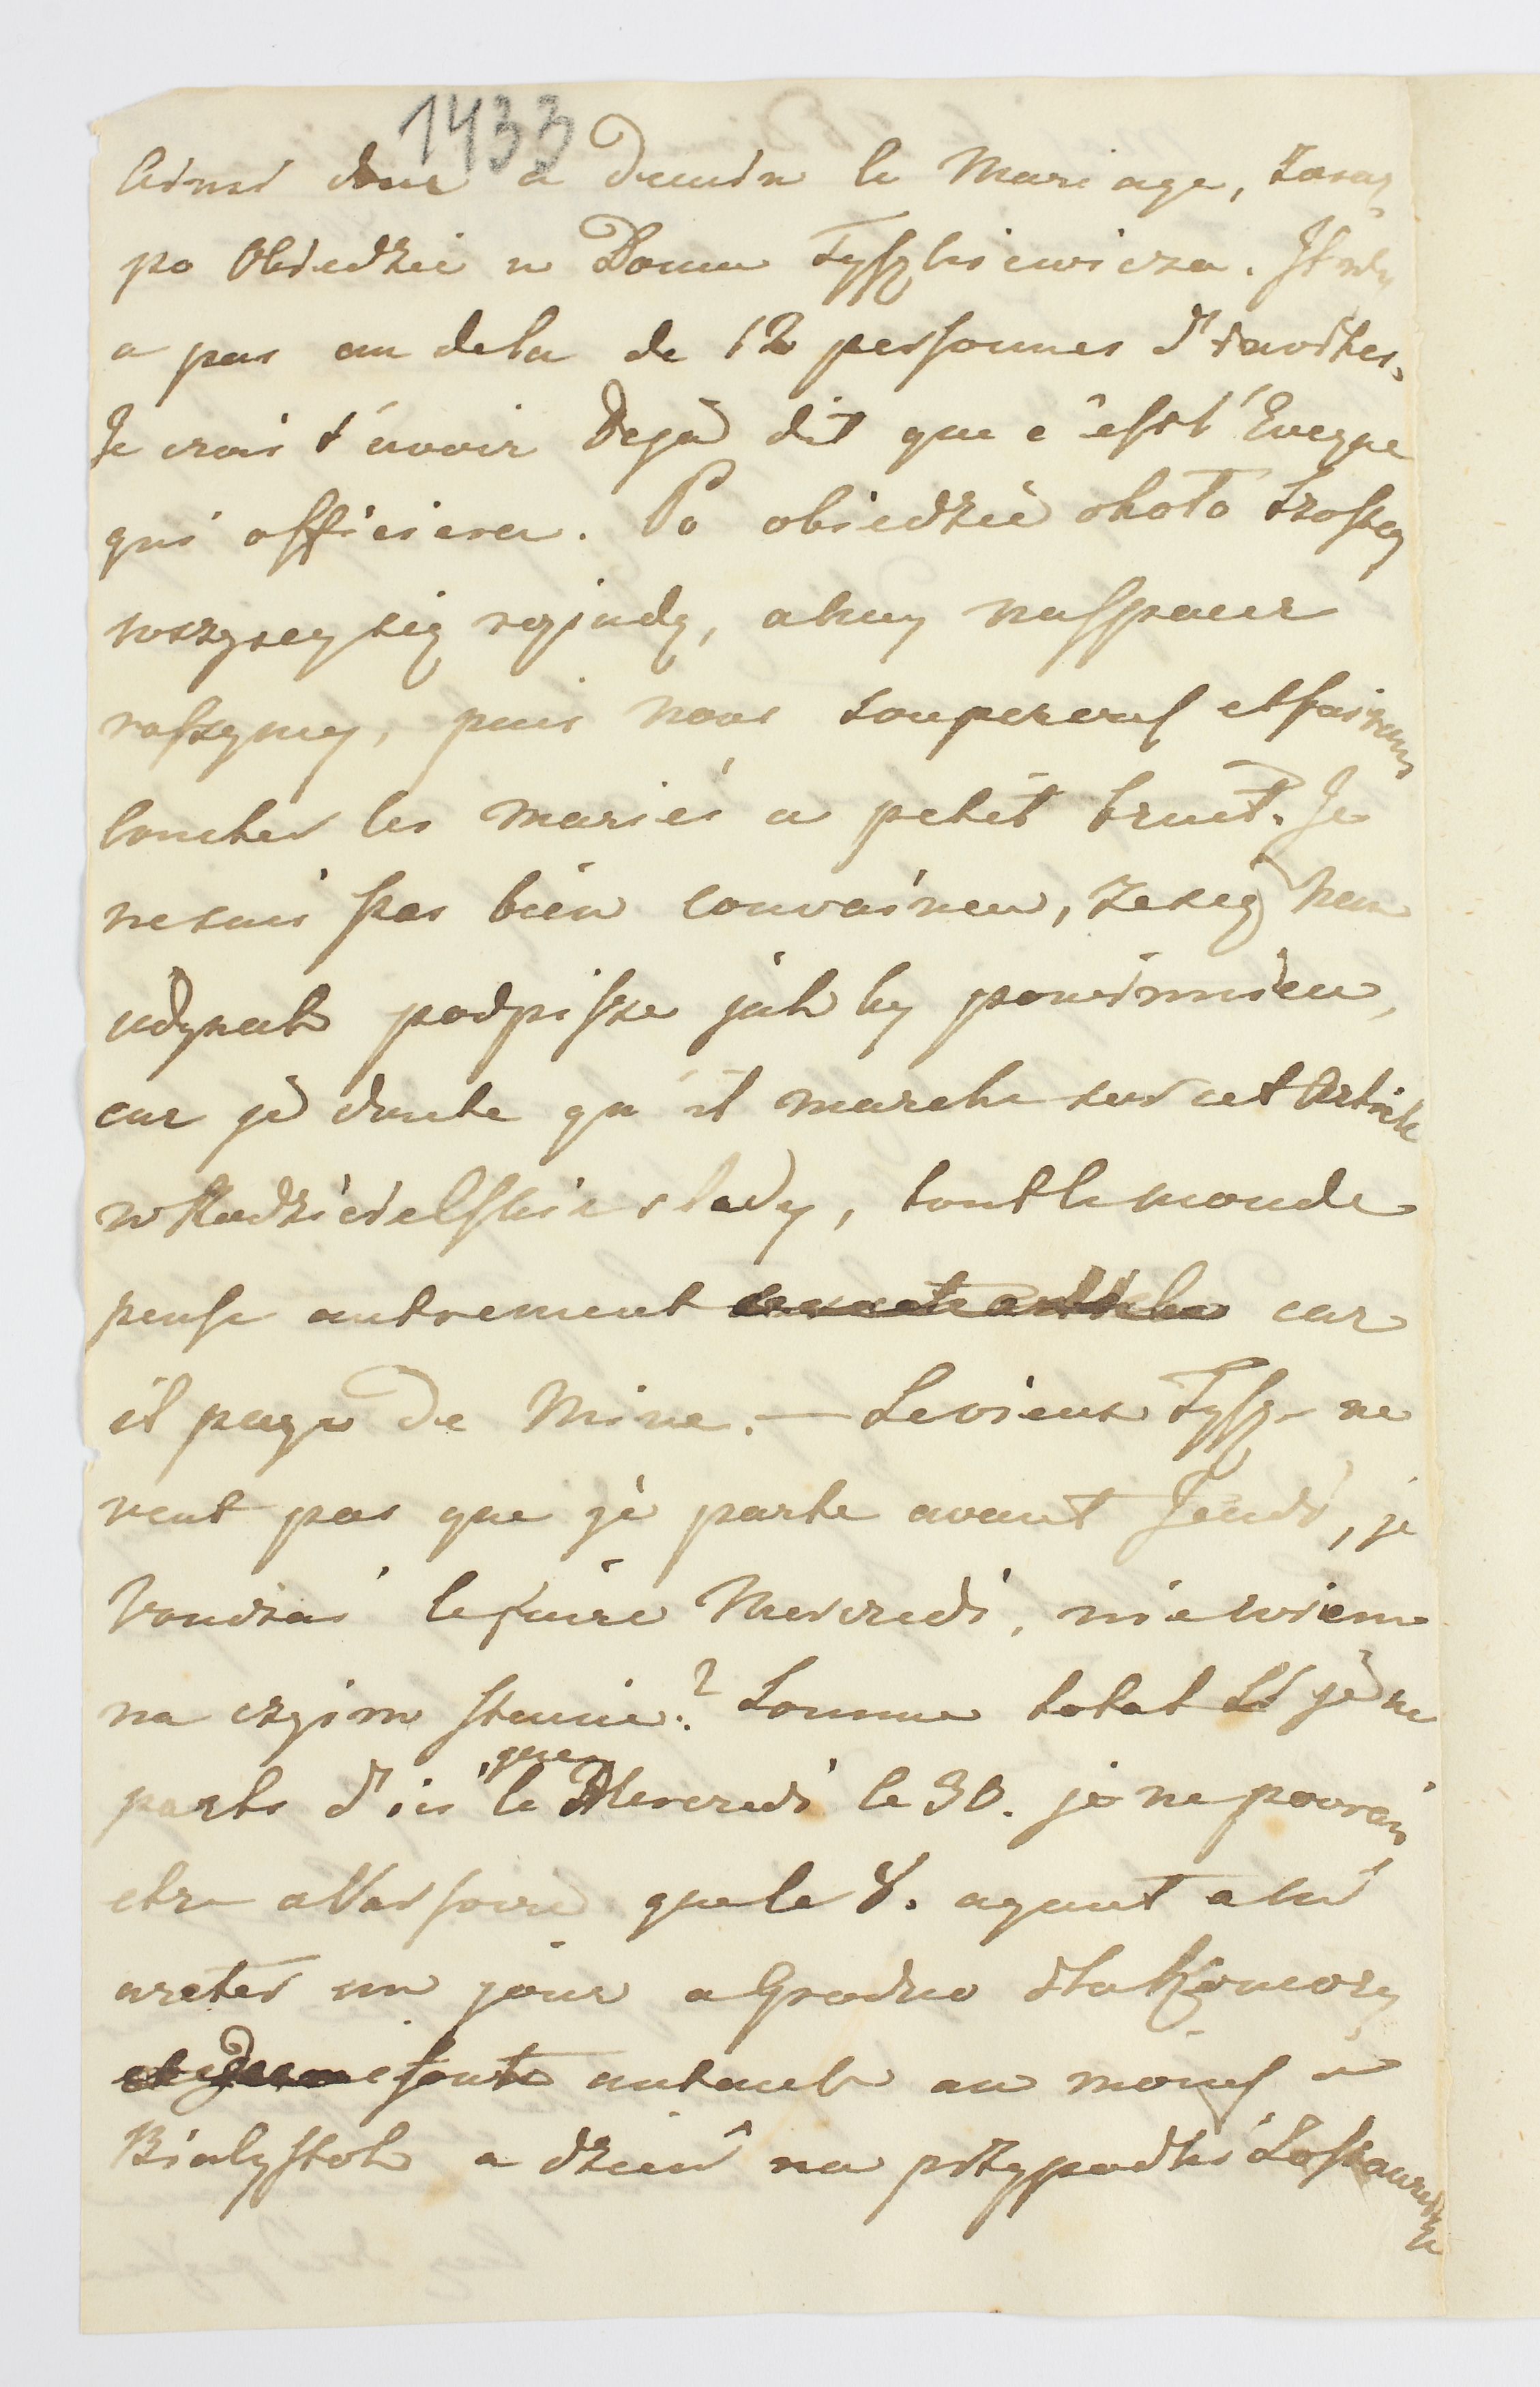 1433
Ainsi donc a demin le Mariage, zaraz
po Obiedzie w Domu Tyszkiewicza. Il ny
a pas au dela de 12 personnes d'invites.
Je crois t'avoir Deja dit que c'est l'Eveque
qui officiera. Po obiedzie około Szostey
wszyscy się rozjadą, a my na spacer
ruszymy, puis nous souperons et faisons
coucher les mariés a petit bruit. Je
ne suis pas bien convaincu, ze się ten
udynek podpisze jak by powinnien,
car je doute qu'il marche sur cet Article
w Radziwiłskie slady, tout le monde
pense autrement car
il paye de Mine. — Le vieux Tysz. ne
veut pas que je parte avant Jeudi, je
voudrai le faire Mercredi, nie wiem
na czyim stanie? Somme total Si je ne
parts d'ici que le Mercredi le 30. je ne pourai
etre a Varsovie que le 8. ayant a m'
areter un jour a Grodno dla
autant au moins a
Bialystok a dzień na przypadki